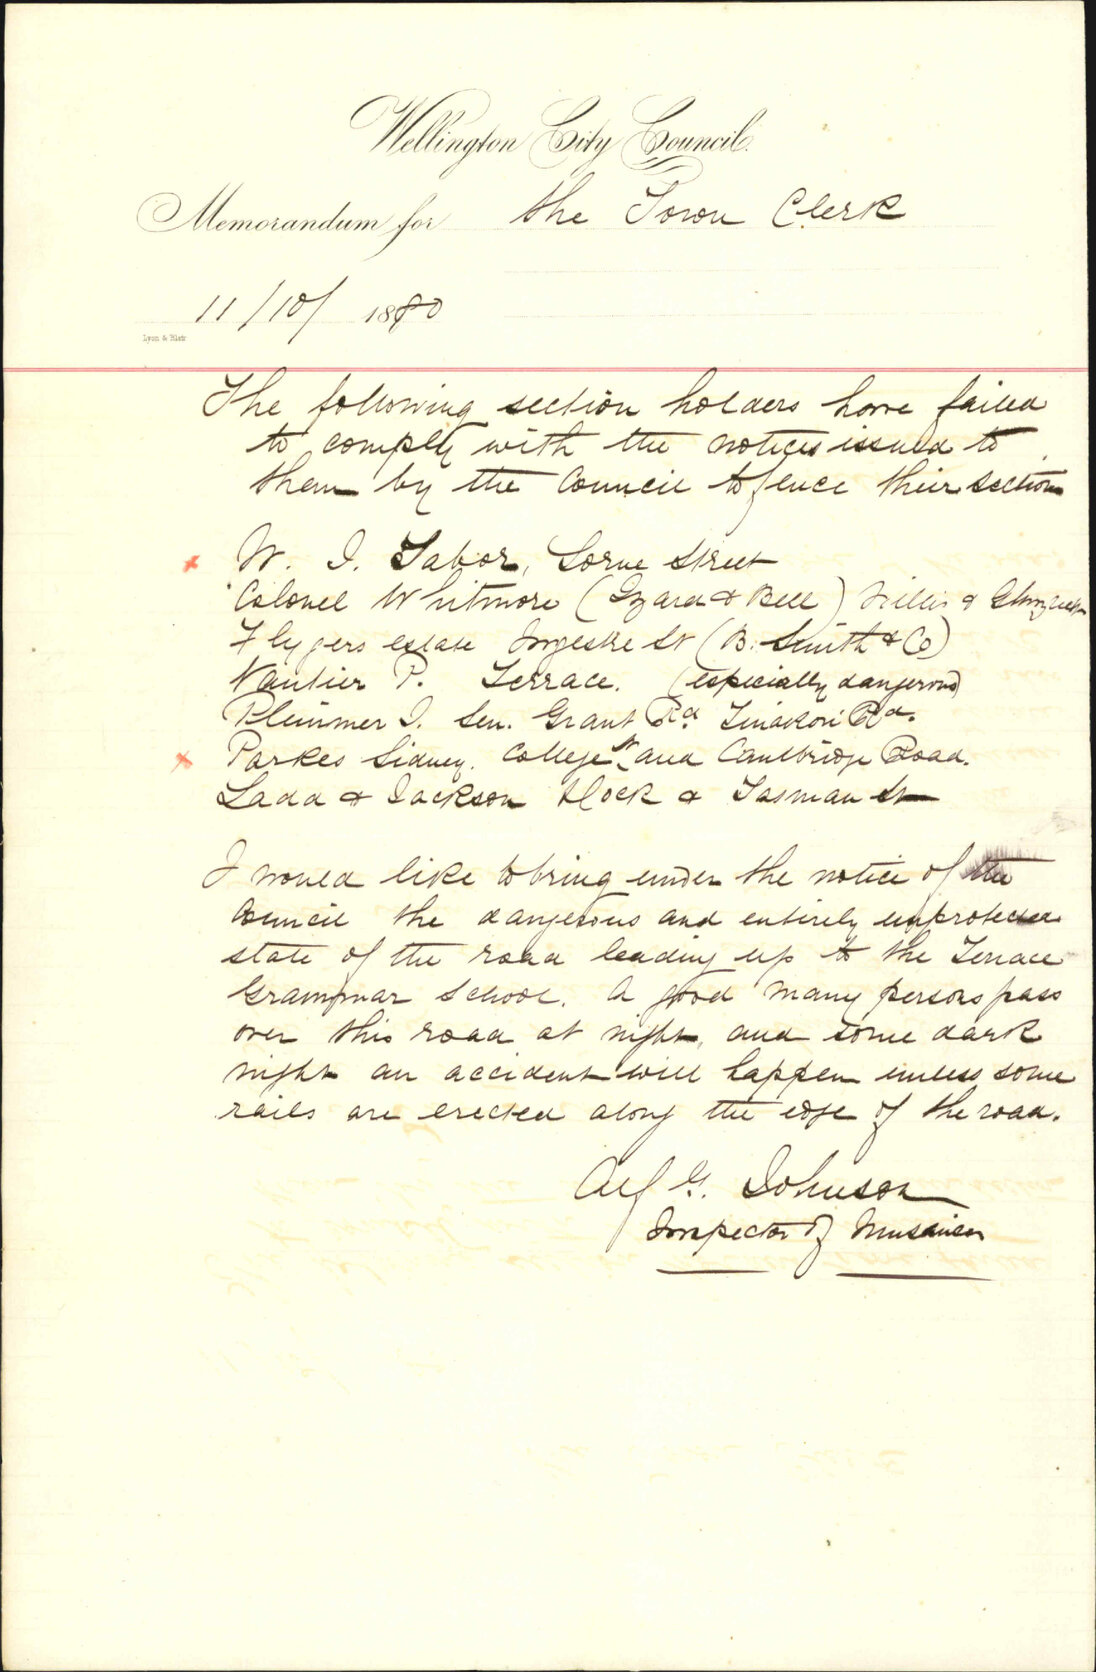 Wellington City Council.
Memorandum for the Town Clerk
11/10/ 1880
Lyon & Blair
The following section holders have failed
to comply with the notices issued to
them by the Council to fence their sections
x W. I. Tabor, Lorne Street
Colonel Whitmore (Izard & Bell) Willis & Ghuznee
Flygers estate Ingestre St (B. Smith & Co)
Nantier P. Terrace. (especially dangerous)
Plimmer I. Sen. Grant Rd. Tinakori Rd.
x Parkes Sidney. College St and Cambridge Road.
Ladd & Jackson Hock & Tasman St
I would like to bring under the notice of the
Council the dangerous and entirely unprotected
state of the road leading up to the Terrace
Grammar School. A good many persons pass
over this road at night, and some dark
night an accident will happen unless some
rails are erected along the edge of the road.
Alf G. Johnson
Inspector of Nusances